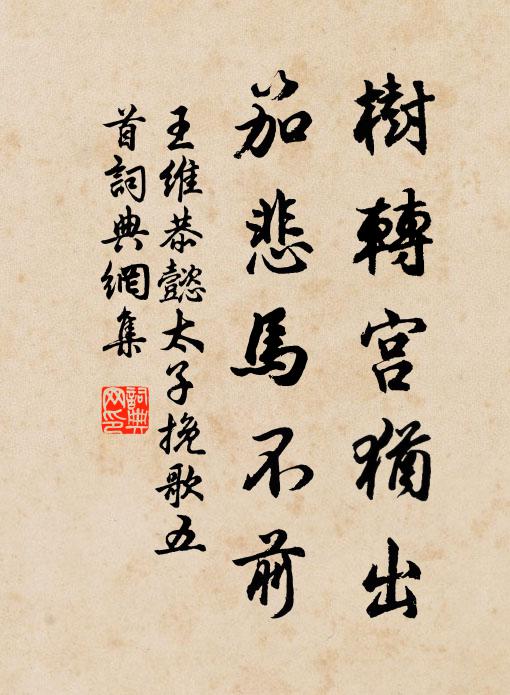 樹轉宮猶出
笳悲馬不前
王維恭懿太子挽歌五
首詞典網集
詞典
网印